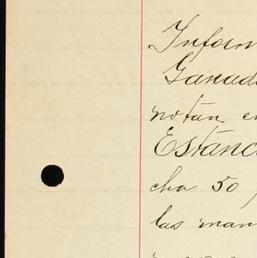 Inform
Ganad
notan e
Estanc
cha 50
las man